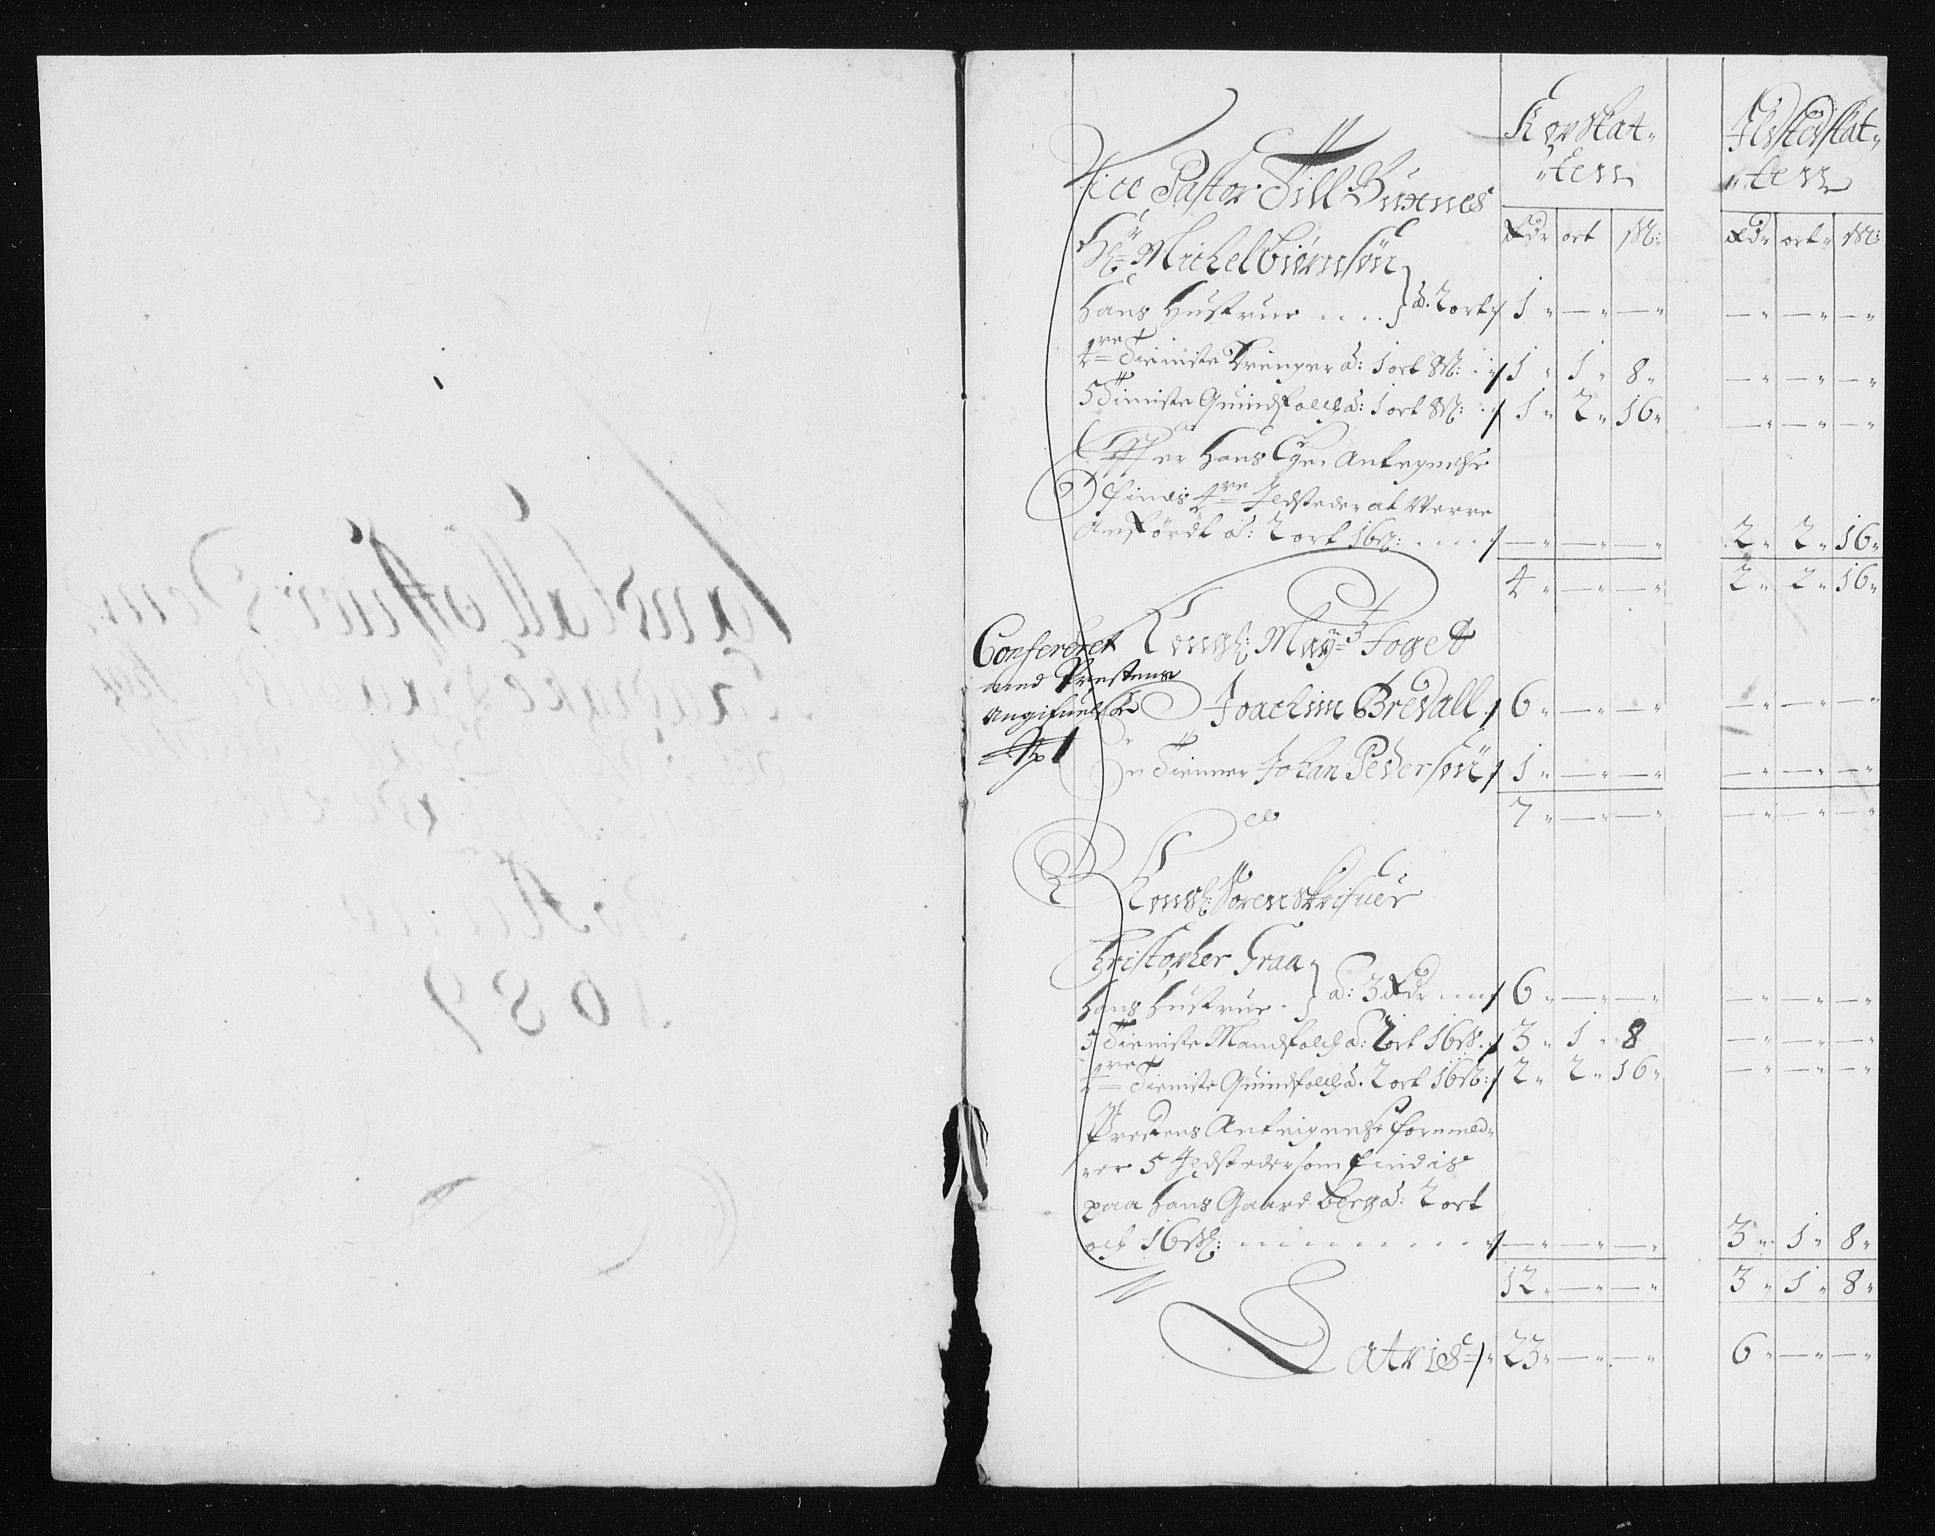 Kopskat-
ten
Ildstedskat-
ten
Rdr ort ß:
Rdr ort ß:
Vice Pastor Till Buxnes
Hr Michel Biørnsøn
Hans Hustrue } a. 2 ort 1 " — " — "
4re Tieniste Drenger a: 1 ort 8 ß: 1 " 1 " 8 "
5 Tieniste Quindfolch a: 1 ort 8 ß: 1 " 2 " 16 "
Effter hans Egen Antegnelse
findis 4re Ildsteder at Werre
Anførdt a: 2 ort 16 ß: — " — " — " 2 " 2 " 16 "
4 " — " — " 2 " 2 " 16 "
Confereret
med Prestens
Angifuelse
No 1
Kongl: May: Foget
Joachim Brevall 6 " — " — "
En Tienner Johan Pedersøn 1 " — " — "
7 " — " — "
Kongl: Sorenskrifuer
Christopher Graa
Hans Hustrue } a: 3 Rdr 6 " — " — "
5 Tieniste Mandfolch a: 2 ort 16 ß 3 " 1 " 8
4re Tieniste Quindfolch a. 2 ort 16 ß: 2 " 2 " 16 "
Prestens Anteignelse formeld-
er 5 Ildsteder som findis
paa hans Gaard berg a: 2 ort
och 16 ß: — " — " — " 3 " 1 " 8 "
12 " — " — " 3 " 1 " 8 "
Latris 23 " — " — " 6 " — " — "